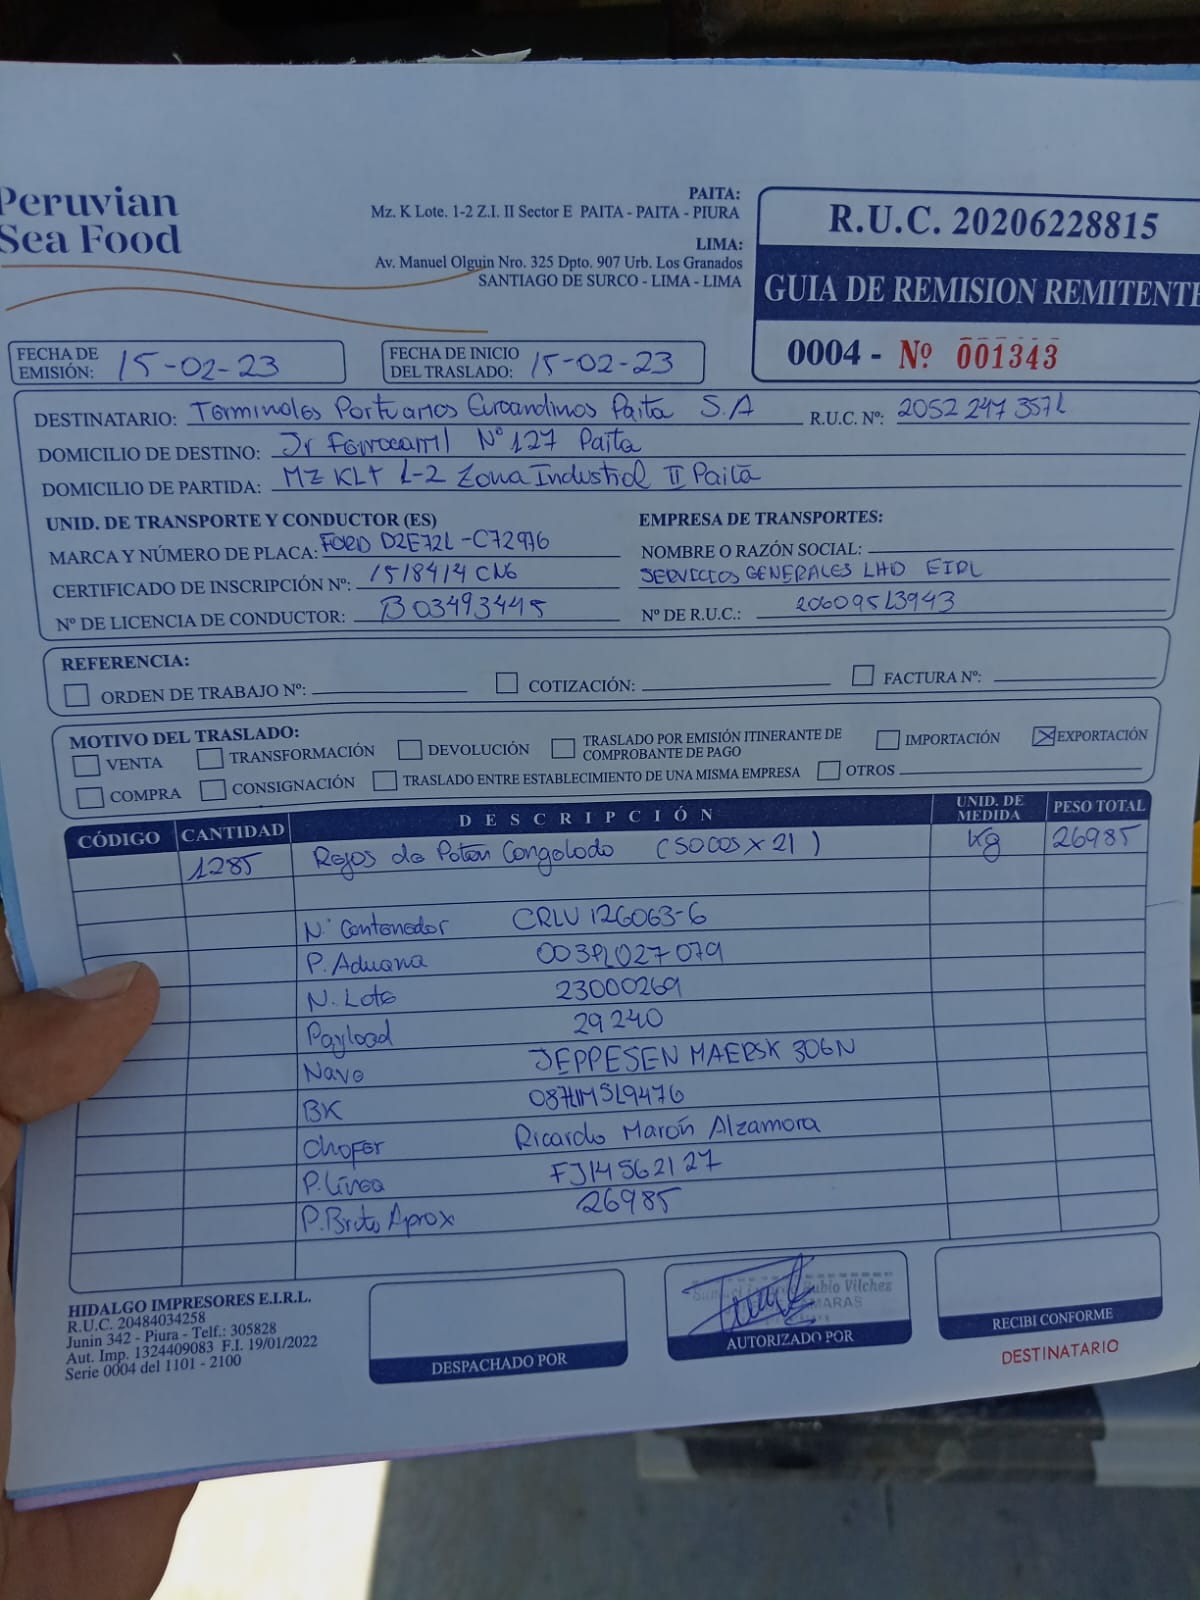 Peruvian
Sea Food
PAITA:
Mz. K Lote. 1-2 Z.I. II Sector E PAITA - PAITA - PIURA
LIMA:
Av. Manuel Olguin Nro. 325 Dpto. 907 Urb. Los Granados
SANTIAGO DE SURCO - LIMA - LIMA
R.U.C. 20206228815
GUIA DE REMISION REMITENTE
0004 - Nº 001343
FECHA DE EMISIÓN: 15-02-23
FECHA DE INICIO DEL TRASLADO: 15-02-23
DESTINATARIO: Terminales Portuarios Euroandinos Paita S.A R.U.C. Nº: 20522473571
DOMICILIO DE DESTINO: Jr Ferrocarril Nº 127 Paita
DOMICILIO DE PARTIDA: Mz K Lt 1-2 Zona Industrial II Paita
UNID. DE TRANSPORTE Y CONDUCTOR (ES)
MARCA Y NÚMERO DE PLACA: FORD D2E721 - C72976
CERTIFICADO DE INSCRIPCIÓN Nº: 1518414 CNG
Nº DE LICENCIA DE CONDUCTOR: B 03493445
EMPRESA DE TRANSPORTES:
NOMBRE O RAZÓN SOCIAL:
SERVICIOS GENERALES LHD EIRL
Nº DE R.U.C.: 20609513943
REFERENCIA:
ORDEN DE TRABAJO Nº:
COTIZACIÓN:
FACTURA Nº:
MOTIVO DEL TRASLADO:
VENTA
TRANSFORMACIÓN
DEVOLUCIÓN
TRASLADO POR EMISIÓN ITINERANTE DE COMPROBANTE DE PAGO
IMPORTACIÓN
EXPORTACIÓN
COMPRA
CONSIGNACIÓN
TRASLADO ENTRE ESTABLECIMIENTO DE UNA MISMA EMPRESA
OTROS
CÓDIGO CANTIDAD DESCRIPCIÓN UNID. DE MEDIDA PESO TOTAL
1285 de Congelado Kg 26985
Nº Contenedor CRLU 126063-6
P. Aduana 003PL027079
N. Lote 23000269
Payload 29240
Nave JEPPESEN MAERSK 306N
BK
Chofer Ricardo Alzamora
P. Línea FJ14562127
P. Bruto Aprox 26985
HIDALGO IMPRESORES E.I.R.L.
R.U.C. 20484034258
Junin 342 - Piura - Telf.: 305828
Aut. Imp. 1324409083 F.I. 19/01/2022
Serie 0004 del 1101 - 2100
DESPACHADO POR
Rubio Vilchez
AUTORIZADO POR
RECIBI CONFORME
DESTINATARIO